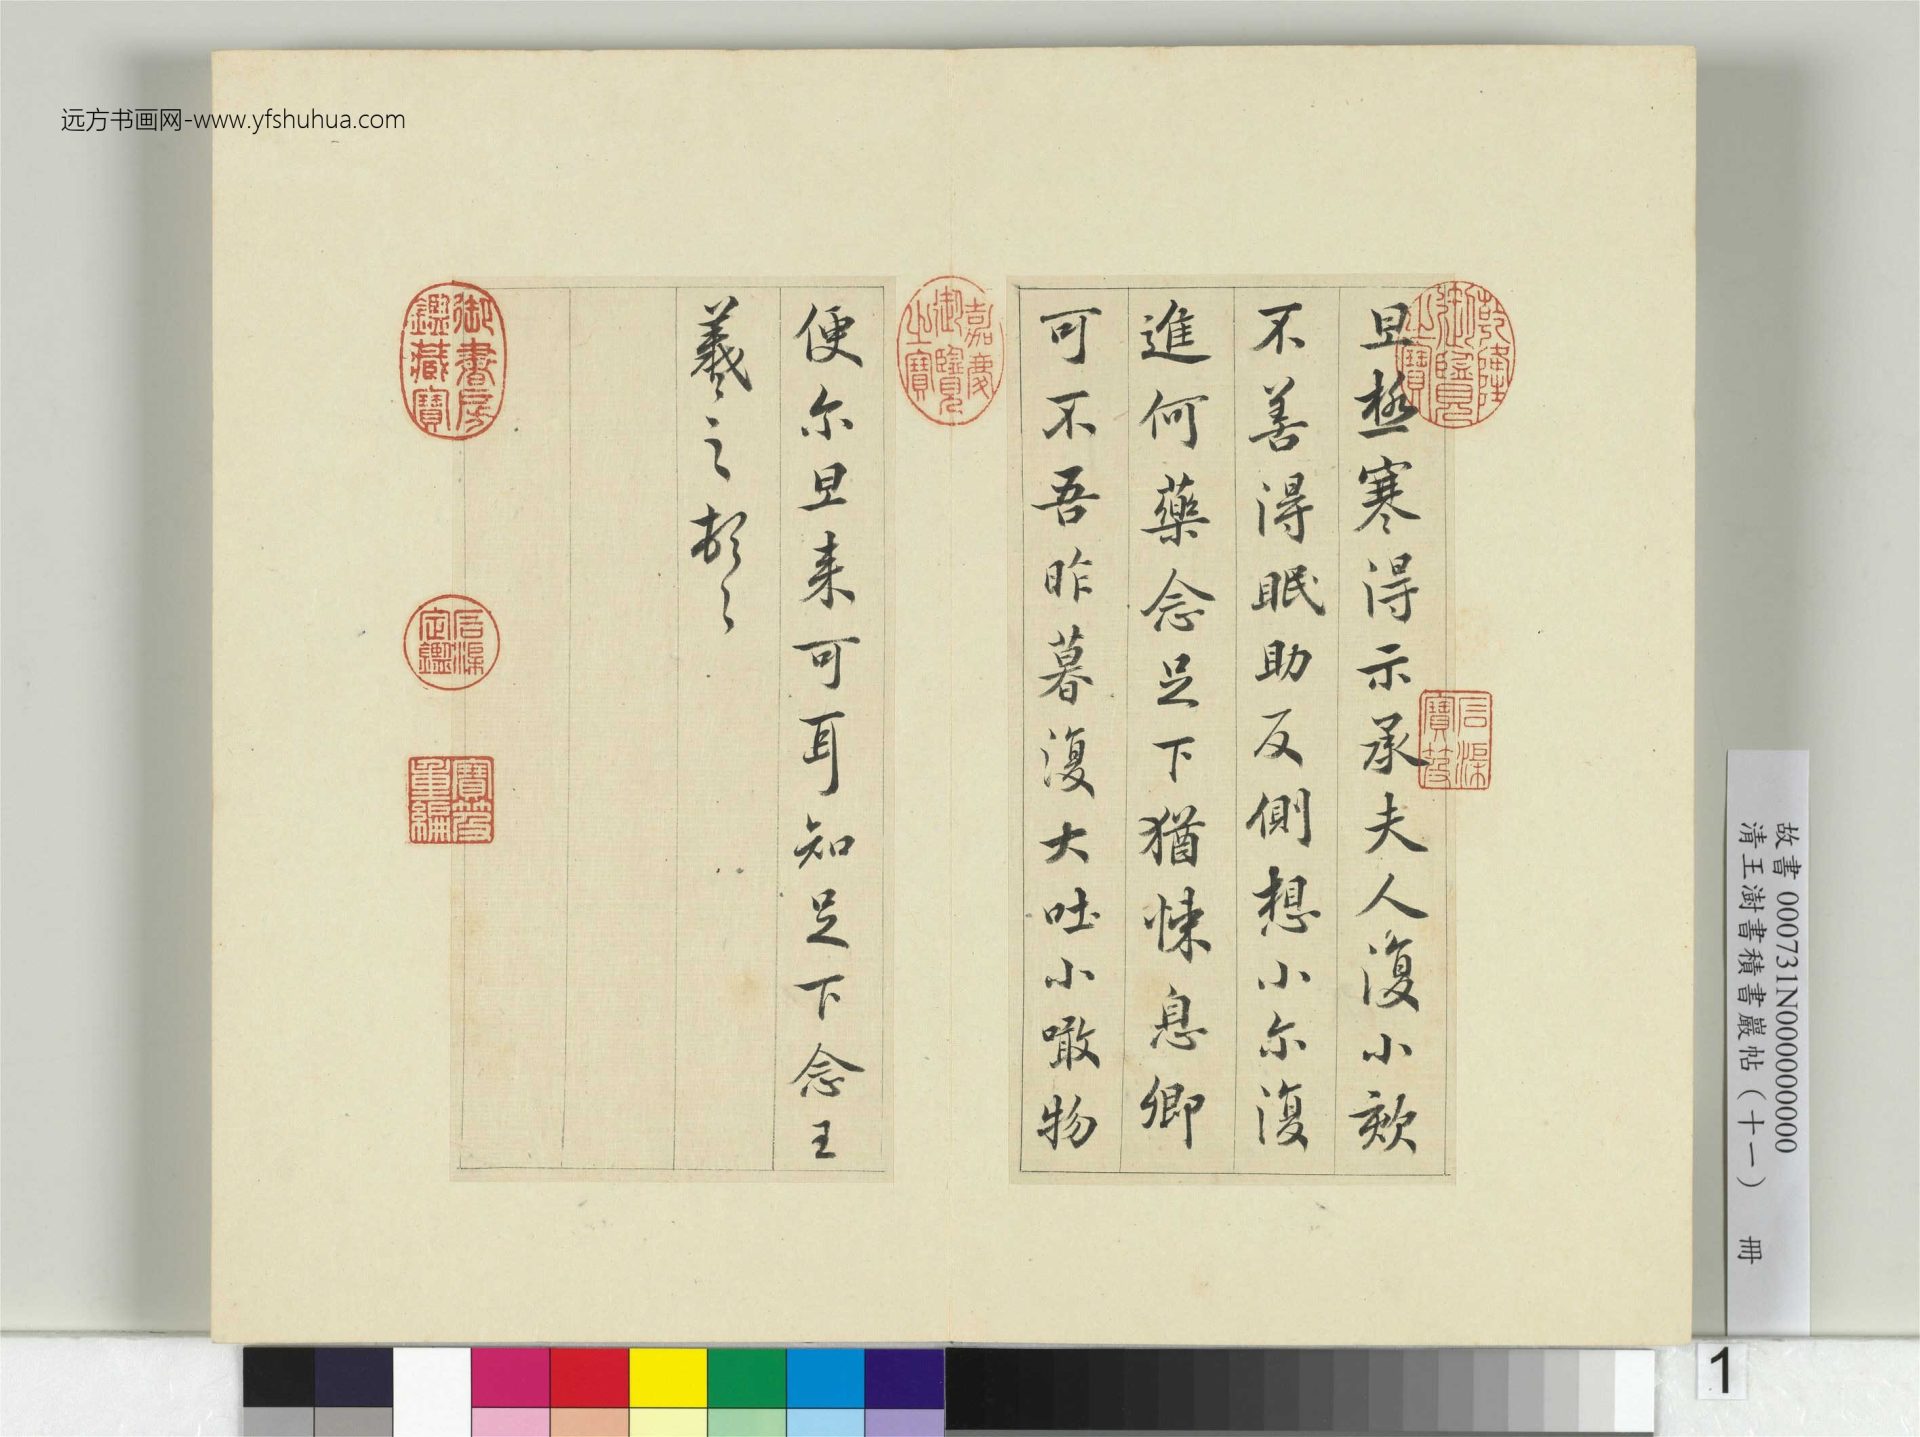 远方书画网-www.yfshuhua.com
旦極寒得示承夫人復小欬
不善得眠助反側想小尓復
進何藥念足下猶悚息卿
可不吾昨暮復大吐小噉物
便尓旦来可耳知足下念王
羲之頓〻
乾隆御覽之寶
石渠寶笈
嘉慶御覽之寶
御書房鑑藏寶
石渠定鑑
寶笈重編
故書 000731N000000000
清王澍書積書巖帖（十一） 冊
1